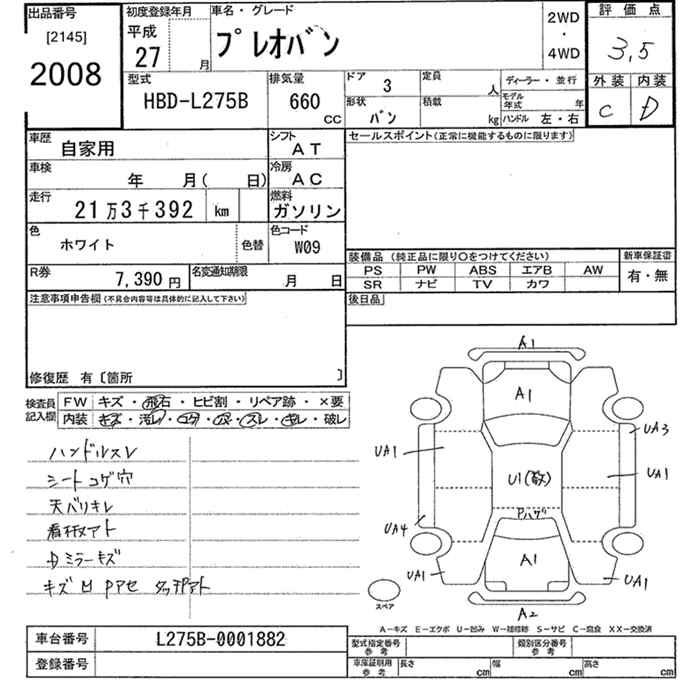 出品番号
[2145]
2008
初度登録年月
平成
27 月
車名・グレード
プレオバン
2WD
・
4WD
評価点
3,5
外装 内装
C D
型式
HBD-L275B
排気量
660
CC
ドア 3
形状 バン
定員 人
積載 kg
ディーラー・並行
モデル年式 年
ハンドル 左・右
車歴
自家用
シフト
AT
車検
年 月( 日)
冷房
AC
走行
21万3千392 km
燃料
ガソリン
色
ホワイト
色替
色コード
W09
R券
7,390 円
名変通知期限
月 日
セールスポイント(正常に機能するものに限ります)
装備品(純正品に限り○をつけてください)
PS PW ABS エアB AW
SR ナビ TV カワ
新車保証書
有・無
後日品
注意事項申告欄(不具合内容等は具体的に記入して下さい)
修復歴 有〔箇所 〕
検査員
記入欄
FW キズ・飛石・ヒビ割・リペア跡・×要
内装 キズ・汚レ・コゲ・穴・スレ・キレ・破レ
ハンドルスレ
シートコゲ穴
天バリキレ
看板アト
Dミラーキズ
キズ凹Pアセ タッチアト
A1
A1
UA3
UA1
U1(散)
UA1
Pハゲ
UA4
A1
UA1
UA1
A2
スペア
A-キズ E-エクボ U-凹み W-補修跡 S-サビ C-腐食 XX-交換済
車台番号
L275B-0001882
登録番号
型式指定番号
参考
類別区分番号
参考
車庫証明用
参考
長さ cm
幅 cm
高さ cm